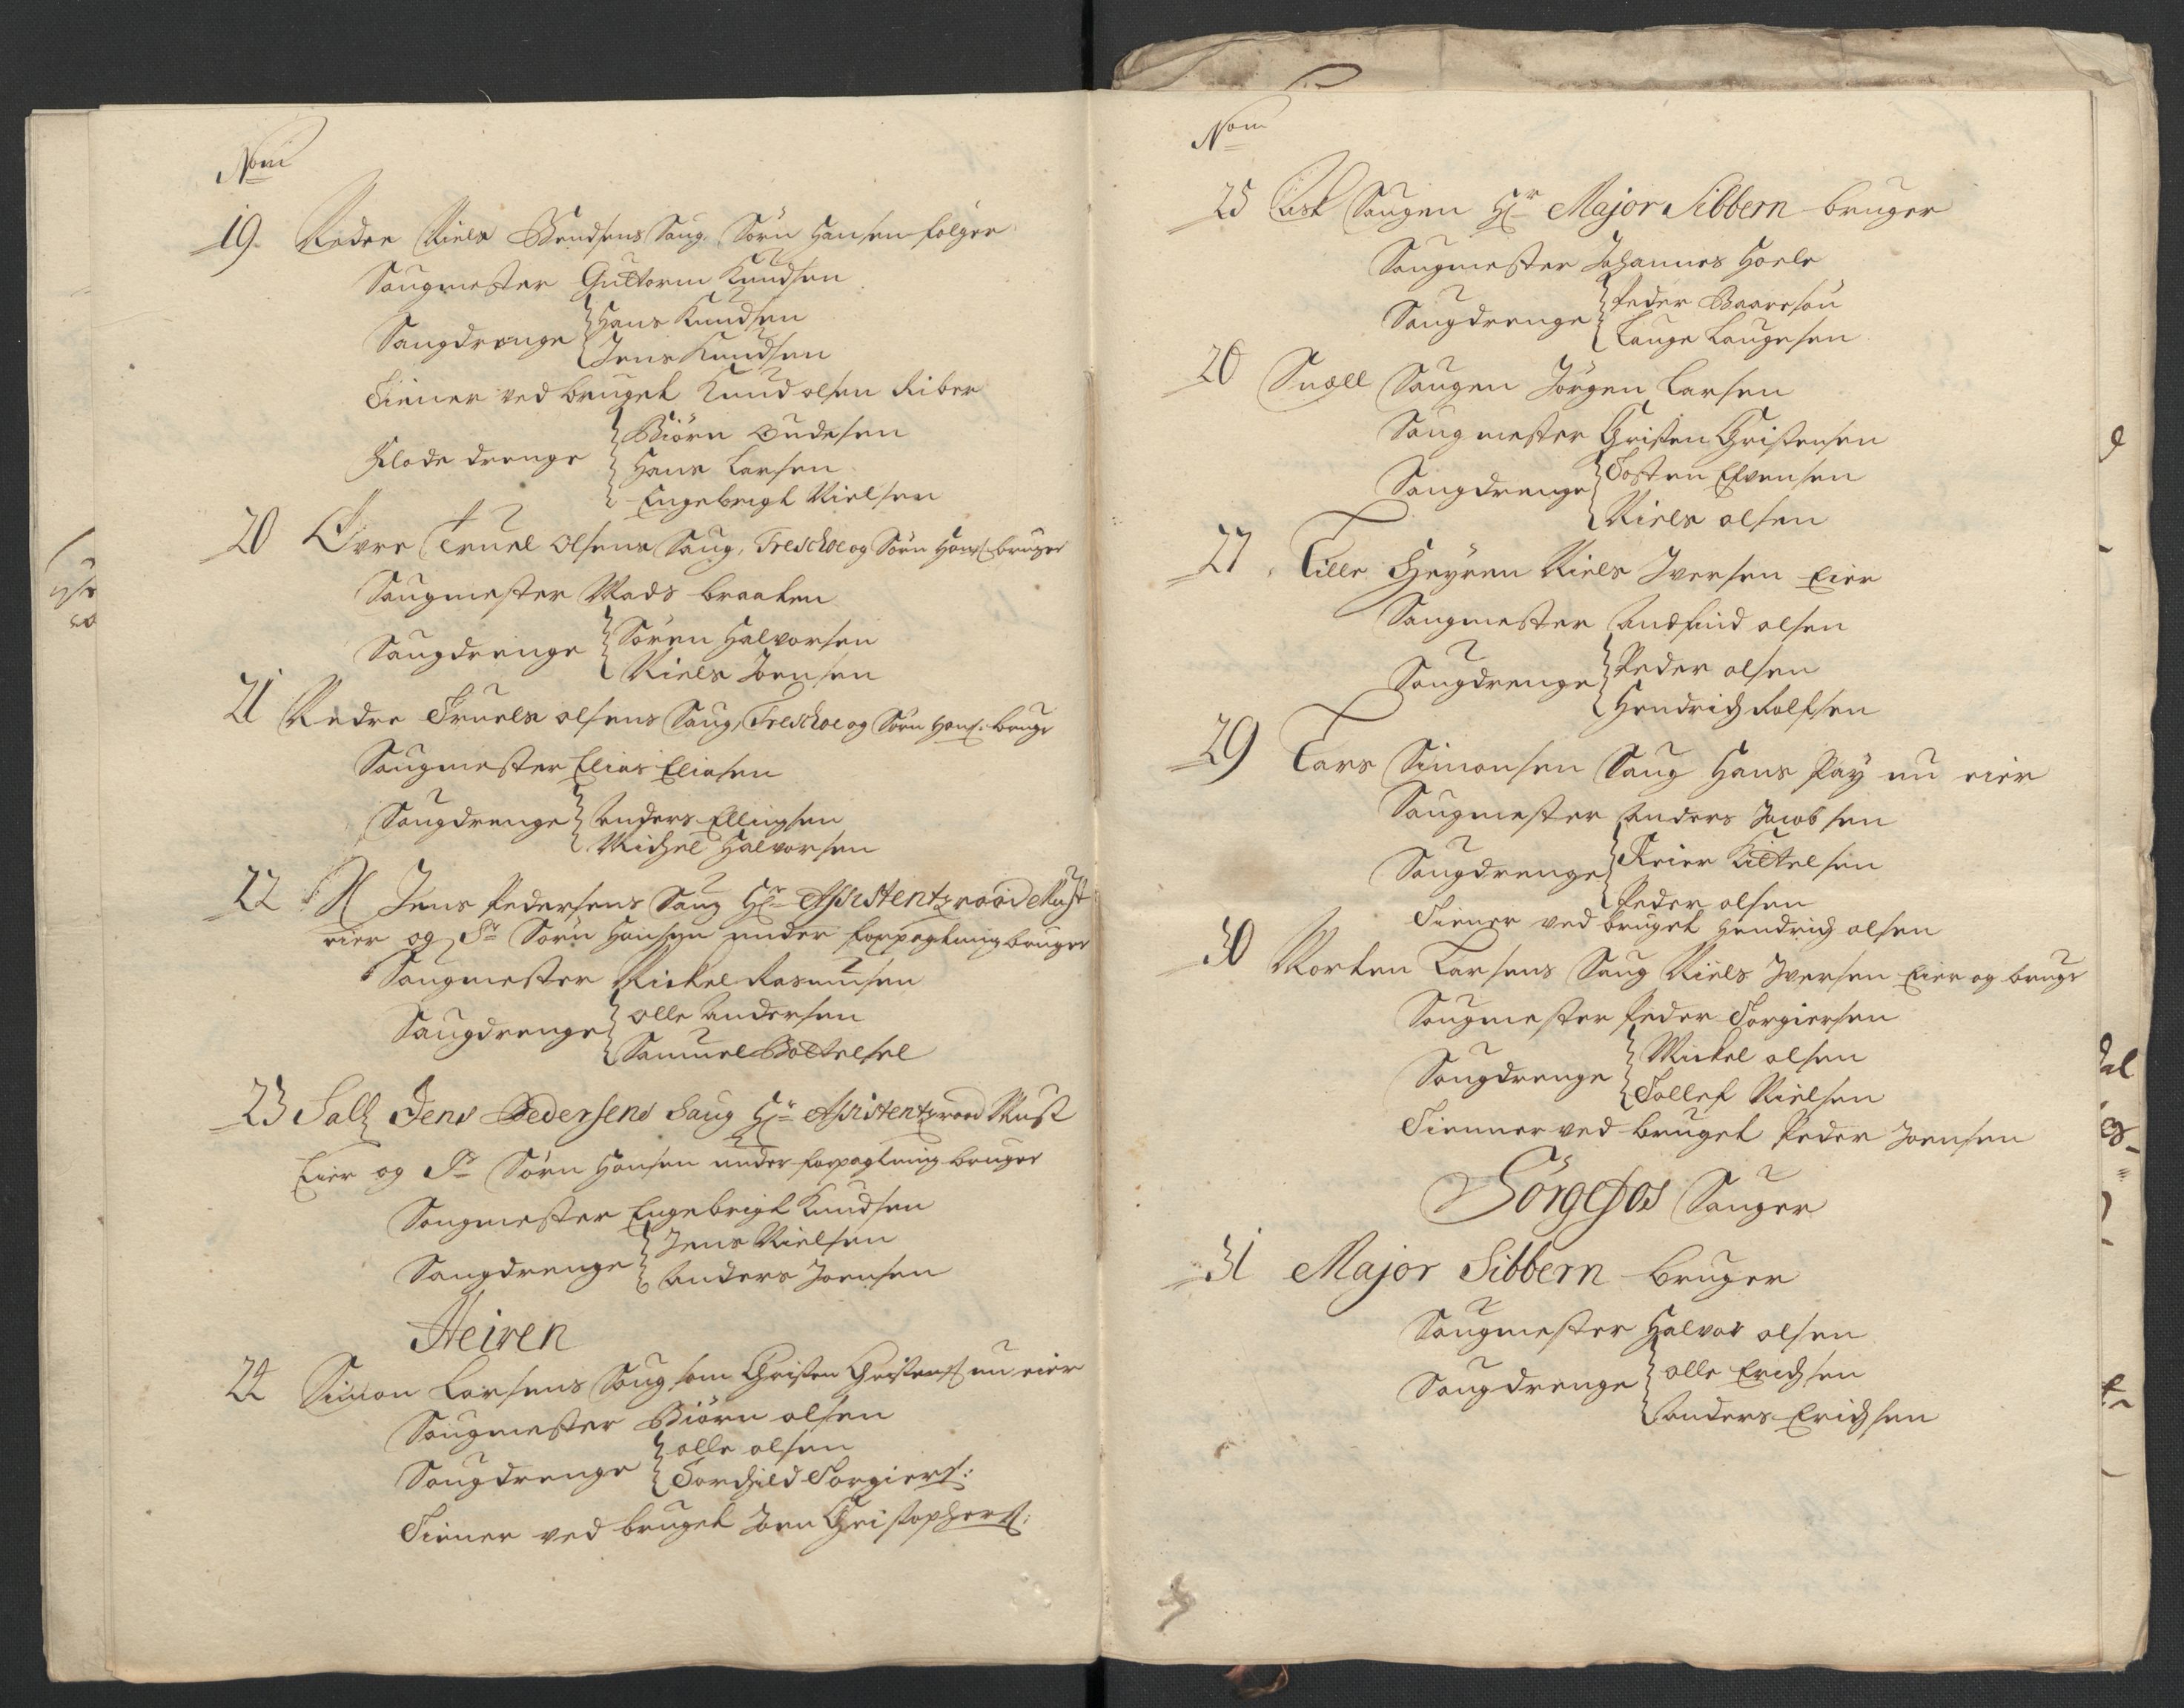 Nom
19. Nedre Niels Bendsens Saug, Sörn Hansen følger
Saugmester Guttorm Knudsen
Saugdrenge Hans Knudsen
Jens Knudsen
Tiener ved bruget Knud olsen Riber
Flode drenge Biörn Gudesen
Hans Larsen
Engebrigt Nielsen
20 Övre Truel Olsens Saug, Treschoe og Sörn Hans: bruger
Saugmester Mads braaten
Saugdrenge Sören Halvorsen
Niels Joensen
21 Nedre Truels olsens Saug, Treschoe og Sörn Hans: bruger
Saugmester Elias Eliasen
Saugdrenge Anders Ellingsen
Michel Halvorsen
22 N Jens Pedersens Saug Hr Assistentzraad Must
eier og Sr Sörn Hansen under forpagtning bruger
Saugmester Mickel Rasmusen
Saugdrenge olle Andersen
Samuel Bottelsel
23 Sallg Jens Pedersens Saug Hr Assistentzraad Must
Eier og Sr Sörn Hansen under forpagtning bruger
Saugmester Engebrigt Knudsen
Saugdrenge Jens Nielsen
Anders Joensen
Heiren
24 Simon Larsens Saug som Christen Christens: nu eier
Saugmester Biörn olsen
Saugdrenge olle olsen
Torchild Torgiers:
Tiener ved bruget Joen Christophers:
Nom
25 Ask Saugen Hr Major Sibbern bruger
Saugmester Johannes Hoele
Saugdrenge Peder Baaresøn
Lauge Laugesen
26 Snoell Saugen Jörgen Larsen
Saugmester Christen Christensen
Saugdrenge Tosten Evensen
Niels olsen
27 Lille Heyren Niels Iversen Eier
Saugmester Andfind olsen
Saugdrenge Peder olsen
Hendrich Rolfsen
29 Lars Simonsen Saug Hans Pay nu eier
Saugmester Anders Jacobsen
Saugdrenge Reier Kittelsen
Peder olsen
Tiener ved bruget Hendrich olsen
30 Morten Larsens Saug Niels Iversen Eier og bruger
Saugmester Peder Torgiersen
Saugdrenge Mickel olsen
Tollef Nielsen
Tienner ved bruget Peder Joensen
Sörgefos Sauger
31 Major Sibbern bruger
Saugmester Halvor olsen
Saugdrenge olle Erichsen
Anders Erichsen